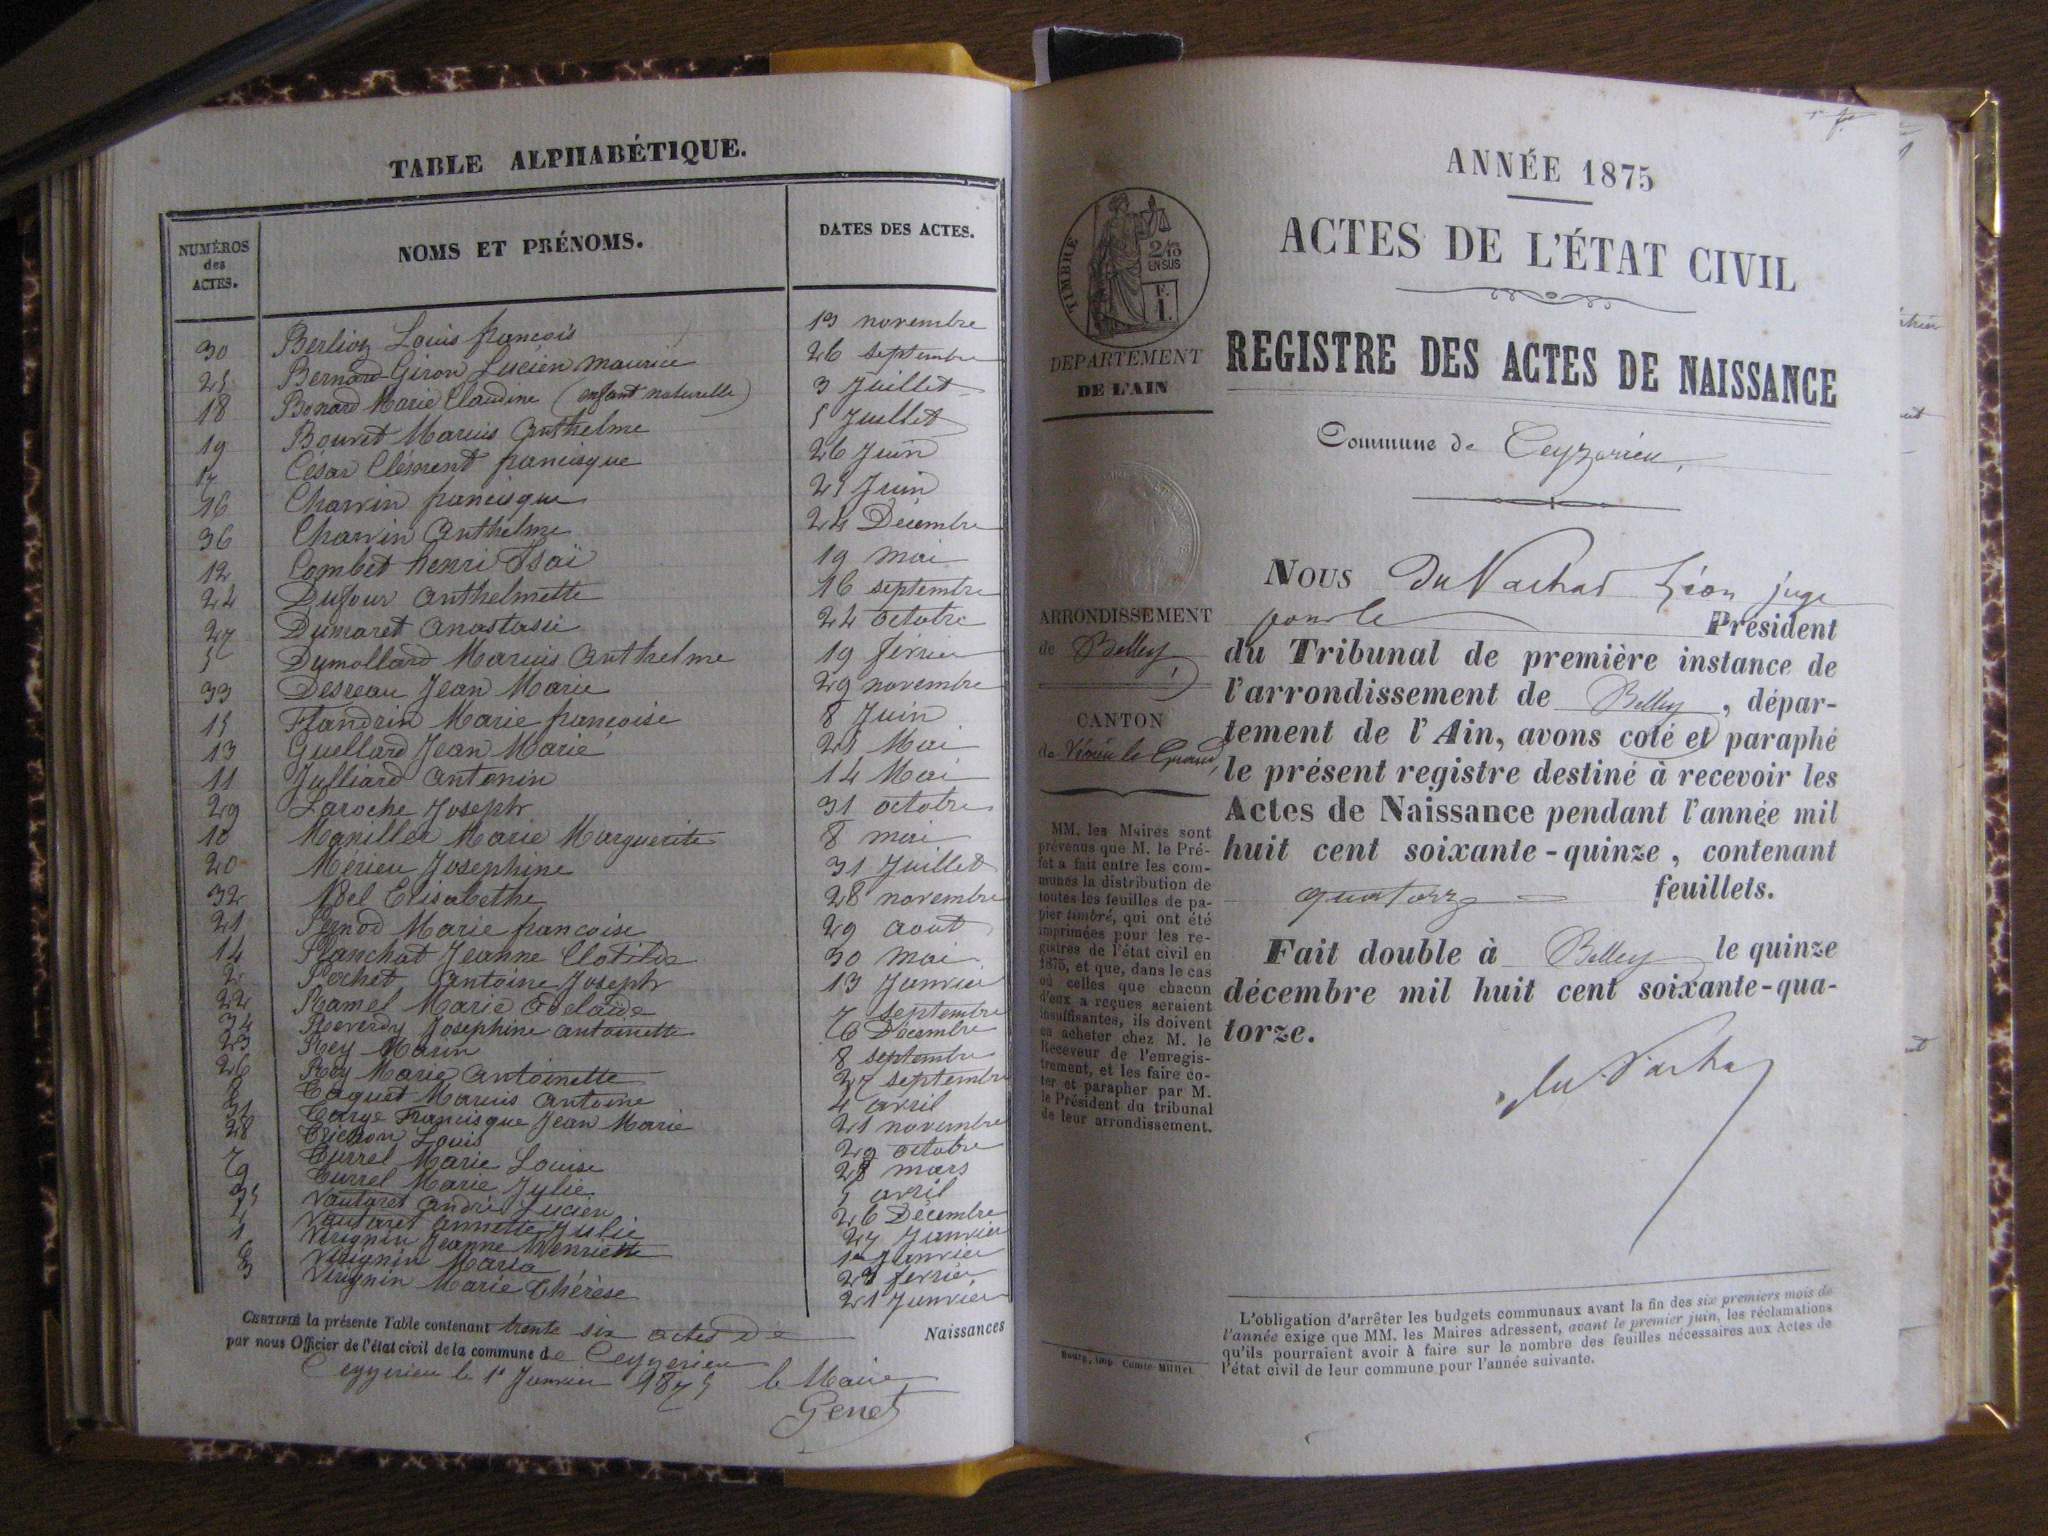 TABLE ALPHABÉTIQUE.
NUMÉROS
des
ACTES.
NOMS ET PRÉNOMS.
DATES DES ACTES.
30 Berlioz Louis françois 13 novembre
25 Bernard Giron Lucien Maurice 26 septembre
18 Bonard Marie Claudine (enfant naturelle) 3 Juillet
19 Bouvet Marius Anthelme 5 Juillet
17 César Clément francisque 26 Juin
16 Charvin francisque 25 Juin
36 Charvin Anthelme 24 Décembre
12 Combet henri Isaï 19 mai
24 Dufour Anthelmette 16 septembre
27 Dumaret Anastasie 24 octobre
5 Dumollard Marius Anthelme 19 février
33 Jean Marie 29 novembre
15 Flandrin Marie françoise 8 Juin
13 Guellard Jean Marie 25 Mai
11 Julliard Antonin 14 Mai
29 Laroche Joseph 31 octobre
10 Marie Marguerite 8 mai
20 Mérieu Josephine 31 Juillet
32 Noel Elisabethe 28 novembre
21 Pernod Marie francoise 29 aout
14 Planchat Jeanne Clotilde 30 mai
2 Pochet Antoine Joseph 13 Janvier
22 Ramel Marie Adelaïde 7 septembre
34 Reverdy Josephine Antoinette 6 Décembre
23 Rey Marin 8 septembre
26 Roy Marie Antoinette 27 septembre
8 Taquet Marius Antoine 4 avril
31 Francisque Jean Marie 21 novembre
28 Louis 29 octobre
7 Turrel Marie Louise 28 mars
9 Turrel Marie Julie 5 avril
35 Vautaret André Lucien 26 Décembre
Vautaret Annette Julie 27 Janvier
1 Virignin Jeanne Henriette 1er Janvier
Virignin Maria février
3 Virignin Marie Thérèse 21 Janvier
CERTIFIÉ la présente Table contenant trente six actes de Naissances
par nous Officier de l'état civil de la commune de Ceyzerieu
Ceyzerieu le 1er Janvier 1875 le Maire
Genet
ANNÉE 1875
ACTES DE L'ÉTAT CIVIL
REGISTRE DES ACTES DE NAISSANCE
Commune de Ceyzerieu,
TIMBRE
2/10
EN SUS
F.
1.
DEPARTEMENT
DE L'AIN
ARRONDISSEMENT
de Belley
CANTON
de Virieu le Grand
MM. les Maires sont
prévenus que M. le Pré-
fet a fait entre les com-
munes la distribution de
toutes les feuilles de pa-
pier timbré, qui ont été
imprimées pour les re-
gistres de l'état civil en
1875, et que, dans le cas
où celles que chacon
d'eux a reçues seraient
insuffisantes, ils doivent
en acheter chez M. le
Receveur de l'enregis-
trement, et les faire co-
ter et parapher par M.
le Président du tribunal
de leur arrondissement.
Bourg, imp. Comte-Milliet.
NOUS Du Vachat Léon juge
pour le Président
du Tribunal de première instance de
l'arrondissement de Belley, dépar-
tement de l'Ain, avons coté et paraphé
le présent registre destiné à recevoir les
Actes de Naissance pendant l'année mil
huit cent soixante-quinze, contenant
quatorze feuillets.
Fait double à Belley le quinze
décembre mil huit cent soixante-qua-
torze.
du Vachat
L'obligation d'arrêter les budgets communaux avant la fin des six premiers mois de
l'année exige que MM. les Maires adressent, avant le premier juin, les réclamations
qu'ils pourraient avoir à faire sur le nombre des feuilles nécessaires aux Actes de
l'état civil de leur commune pour l'année suivante.